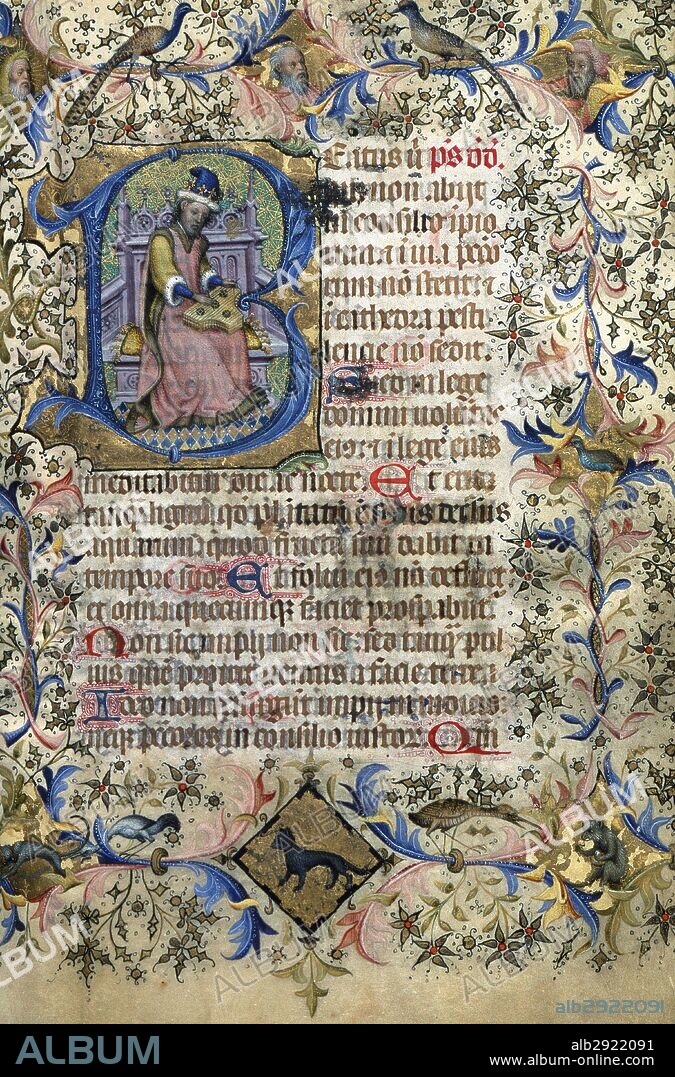 Eatus ii p̄s dd̄.
qui non abijt
in consilio ipio
peccō
rum nō stetit ⁊
i cathedra pesti
lencie nō sedit.
Sed in lege
domini uolūtas
eiꝰ ⁊ i lege eius
meditabitur die ac nocte Et erit
tamq̄ lignū qd̄ plātatum ē secus decursus
aquarum quod fructū suū dabit in
tempore suo Et foliū eiꝰ nō defluet
et omīa quecumqꝫ faciet prosperabūtʳ
Non sic impij non sic sed tamq̄ pul
uis quē proicit uentus a facie terre
Ideo non resurgūt impij in iudicio
neqꝫ pctōres in consilio iustorꝫ Qm̄
alb2922091
ALBUM
alb2922091
www.album-online.com